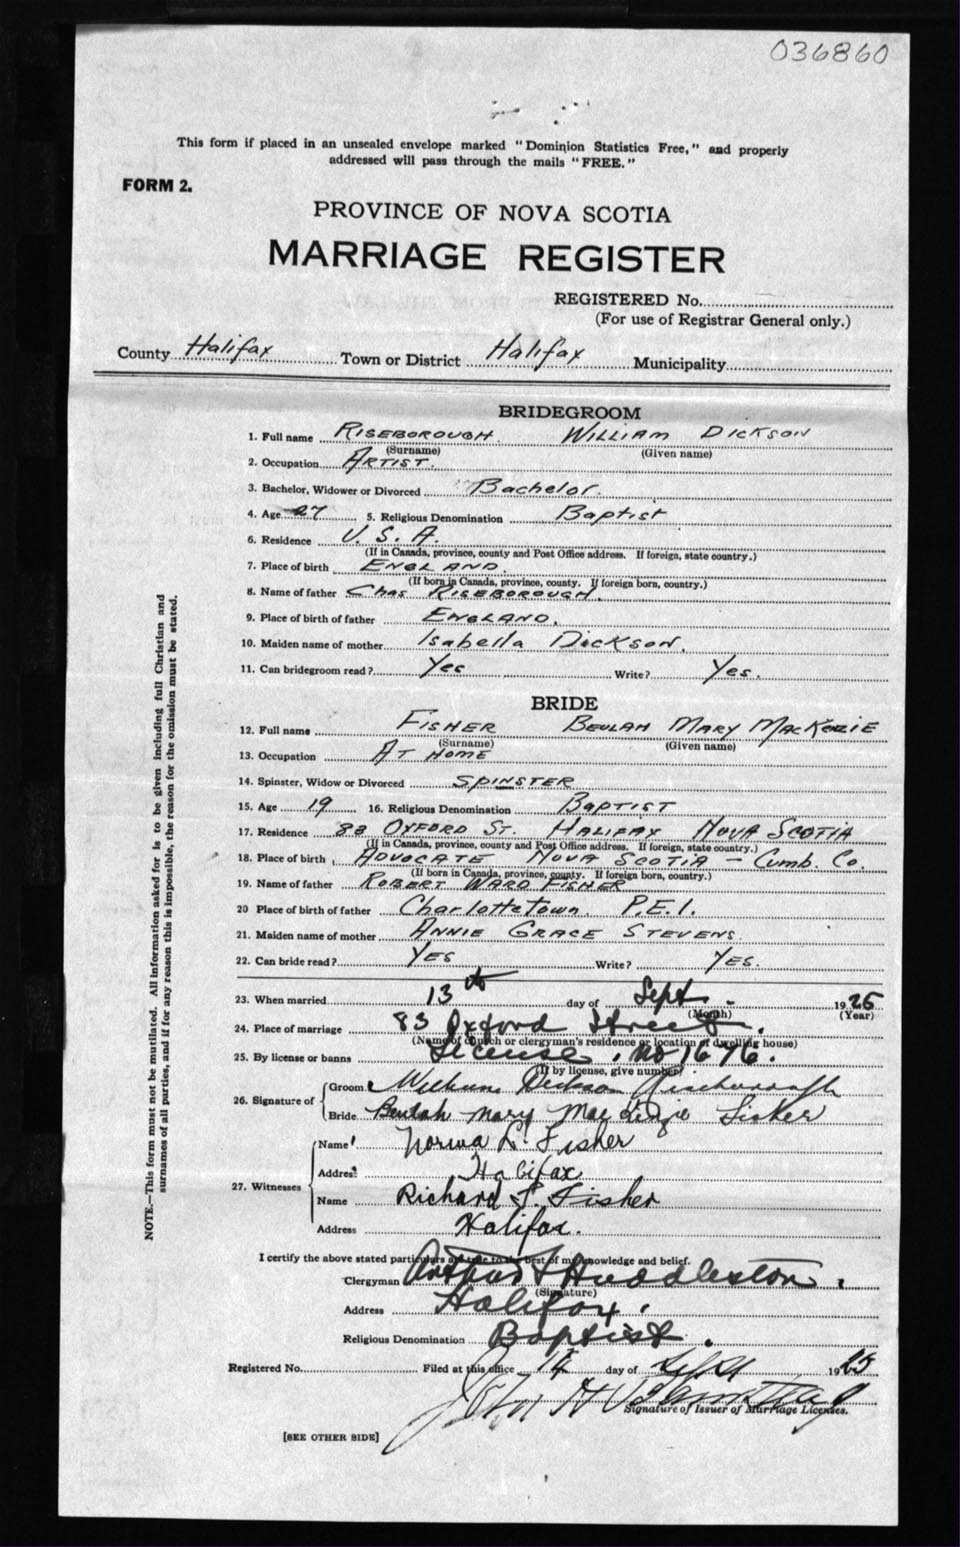 036860
This form if placed in an unsealed envelope marked "Dominion Statistics Free," and properly
addressed will pass through the mails "FREE."
FORM 2.
PROVINCE OF NOVA SCOTIA
MARRIAGE REGISTER
REGISTERED No.
(For use of Registrar General only.)
County Halifax Town or District Halifax Municipality
BRIDEGROOM
1. Full name RISEBOROUGH. WILLIAM DICKSON
(Surname) (Given name)
2. Occupation ARTIST.
3. Bachelor, Widower or Divorced Bachelor.
4. Age 27 5. Religious Denomination Baptist
6. Residence U. S. A.
(If in Canada, province, county and Post Office address. If foreign, state country.)
7. Place of birth ENGLAND.
(If born in Canada, province, county. If foreign born, country.)
8. Name of father Chas RISEBOROUGH.
9. Place of birth of father ENGLAND.
10. Maiden name of mother Isabella DICKSON.
11. Can bridegroom read? Yes Write? Yes.
BRIDE
12. Full name FISHER BEULAH MARY MACKENZIE
(Surname) (Given name)
13. Occupation AT HOME
14. Spinster, Widow or Divorced SPINSTER
15. Age 19 16. Religious Denomination BAPTIST
17. Residence 83 OXFORD ST. HALIFAX NOVA SCOTIA
(If in Canada, province, county and Post Office address. If foreign, state country.)
18. Place of birth ADVOCATE NOVA SCOTIA - Cumb. Co.
(If born in Canada, province, county. If foreign born, country.)
19. Name of father ROBERT WARD FISHER
20 Place of birth of father Charlottetown P.E.I.
21. Maiden name of mother ANNIE GRACE STEVENS
22. Can bride read? YES Write? YES.
23. When married 13th day of Sept. 1925
(Month) (Year)
24. Place of marriage 83 Oxford Street.
(Name of church or clergyman's residence or location of dwelling house)
25. By license or banns License, No 1676.
(If by license, give number)
26. Signature of Groom William Dickson Riseborough
Bride Beulah Mary MacKenzie Fisher
27. Witnesses Name Norma L. Fisher
Address Halifax
Name Richard L. Fisher
Address Halifax.
I certify the above stated particulars are true to the best of my knowledge and belief.
Clergyman Huddleston.
(Signature)
Address Halifax.
Religious Denomination Baptist.
Registered No. Filed at this office 14 day of Sept 1925
Signature of Issuer of Marriage Licenses.
[SEE OTHER SIDE]
NOTE.—This form must not be mutilated. All information asked for is to be given including full Christian and
surnames of all parties, and if for any reason this is impossible, the reason for the omission must be stated.